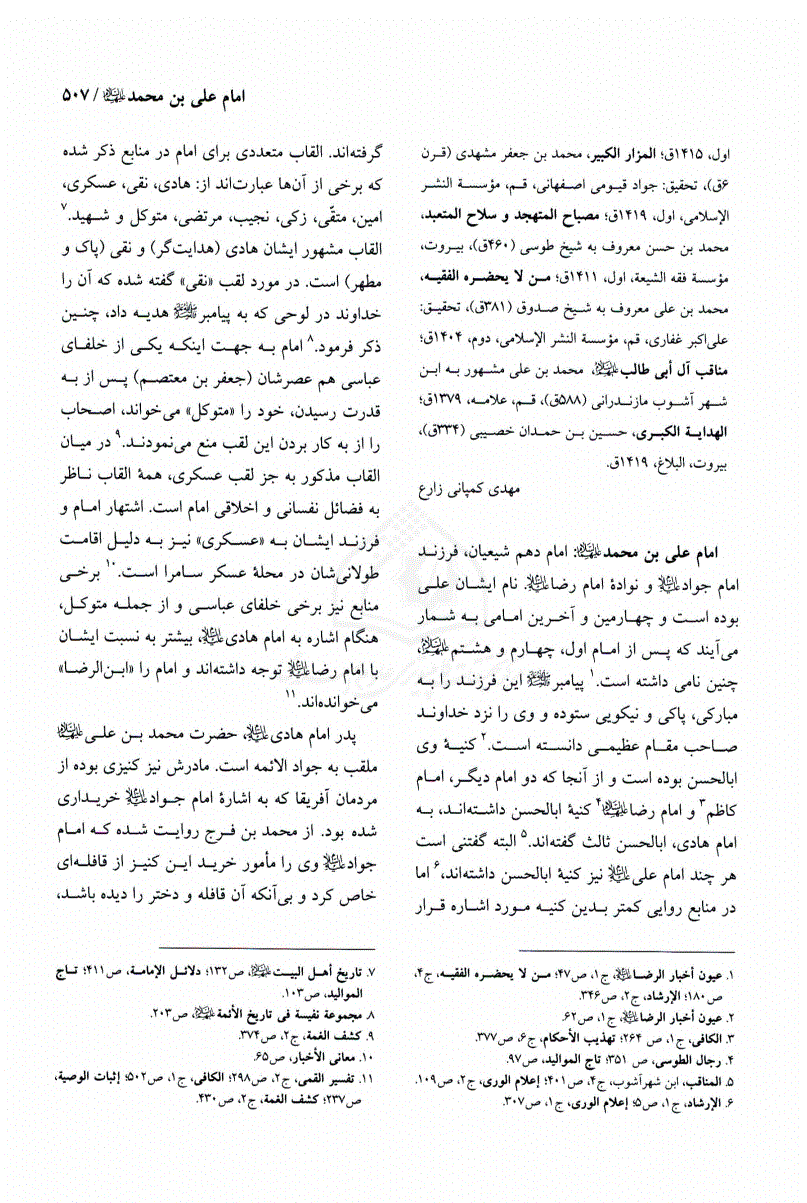 امام علی بن محمد علیهما السلام / ۵۰۷
اول، ۱۴۱۵ق؛ المزار الکبیر، محمد بن جعفر مشهدی (قرن
۶ق)، تحقیق: جواد قیومی اصفهانی، قم، مؤسسة النشر
الإسلامی، اول، ۱۴۱۹ق؛ مصباح المتهجد و سلاح المتعبد،
محمد بن حسن معروف به شیخ طوسی (۴۶۰ق)، بیروت،
مؤسسة فقه الشیعة، اول، ۱۴۱۱ق؛ من لا یحضره الفقیه،
محمد بن علی معروف به شیخ صدوق (۳۸۱ق)، تحقیق:
علی‌اکبر غفاری، قم، مؤسسة النشر الإسلامی، دوم، ۱۴۰۴ق؛
مناقب آل أبی طالب علیهم السلام، محمد بن علی مشهور به ابن
شهر آشوب مازندرانی (۵۸۸ق)، قم، علامه، ۱۳۷۹ق؛
الهدایة الکبری، حسین بن حمدان خصیبی (۳۳۴ق)،
بیروت، البلاغ، ۱۴۱۹ق.
مهدی کمپانی زارع
امام علی بن محمد علیهما السلام: امام دهم شیعیان، فرزند
امام جواد علیه السلام و نوادهٔ امام رضا علیه السلام. نام ایشان علی
بوده است و چهارمین و آخرین امامی به شمار
می‌آیند که پس از امام اول، چهارم و هشتم علیهم السلام،
چنین نامی داشته است.۱ پیامبر صلی الله علیه و آله این فرزند را به
مبارکی، پاکی و نیکویی ستوده و وی را نزد خداوند
صاحب مقام عظیمی دانسته است.۲ کنیهٔ وی
ابالحسن بوده است و از آنجا که دو امام دیگر، امام
کاظم۳ و امام رضا علیهما السلام۴ کنیهٔ ابالحسن داشته‌اند، به
امام هادی، ابالحسن ثالث گفته‌اند.۵ البته گفتنی است
هر چند امام علی علیه السلام نیز کنیهٔ ابالحسن داشته‌اند،۶ اما
در منابع روایی کمتر بدین کنیه مورد اشاره قرار
۱. عیون أخبار الرضا علیه السلام، ج۱، ص۴۷؛ من لا یحضره الفقیه، ج۴،
ص۱۸۰؛ الإرشاد، ج۲، ص۳۴۶.
۲. عیون أخبار الرضا علیه السلام، ج۱، ص۶۲.
۳. الکافی، ج۱، ص ۲۶۴؛ تهذیب الأحکام، ج۶، ص۳۷۷.
۴. رجال الطوسی، ص ۳۵۱؛ تاج الموالید، ص۹۷.
۵. المناقب، ابن شهرآشوب، ج۴، ص۴۰۱؛ إعلام الوری، ج۲، ص۱۰۹.
۶. الإرشاد، ج۱، ص۵؛ إعلام الوری، ج۱، ص۳۰۷.
گرفته‌اند. القاب متعددی برای امام در منابع ذکر شده
که برخی از آن‌ها عبارت‌اند از: هادی، نقی، عسکری،
امین، متقّی، زکی، نجیب، مرتضی، متوکل و شهید.۷
القاب مشهور ایشان هادی (هدایت‌گر) و نقی (پاک و
مطهر) است. در مورد لقب «نقی» گفته شده که آن را
خداوند در لوحی که به پیامبر صلی الله علیه و آله هدیه داد، چنین
ذکر فرمود.۸ امام به جهت اینکه یکی از خلفای
عباسی هم عصرشان (جعفر بن معتصم) پس از به
قدرت رسیدن، خود را «متوکل» می‌خواند، اصحاب
را از به کار بردن این لقب منع می‌نمودند.۹ در میان
القاب مذکور به جز لقب عسکری، همهٔ القاب ناظر
به فضائل نفسانی و اخلاقی امام است. اشتهار امام و
فرزند ایشان به «عسکری» نیز به دلیل اقامت
طولانی‌شان در محلهٔ عسکر سامرا است.۱۰ برخی
منابع نیز برخی خلفای عباسی و از جمله متوکل،
هنگام اشاره به امام هادی علیه السلام، بیشتر به نسبت ایشان
با امام رضا علیه السلام توجه داشته‌اند و امام را «ابن‌الرضا»
می‌خوانده‌اند.۱۱
پدر امام هادی علیه السلام، حضرت محمد بن علی علیهما السلام
ملقب به جواد الائمه است. مادرش نیز کنیزی بوده از
مردمان آفریقا که به اشارهٔ امام جواد علیه السلام خریداری
شده بود. از محمد بن فرج روایت شده که امام
جواد علیه السلام وی را مأمور خرید این کنیز از قافله‌ای
خاص کرد و بی‌آنکه آن قافله و دختر را دیده باشد،
۷. تاریخ أهل البیت علیهم السلام، ص۱۳۲؛ دلائل الإمامة، ص۴۱۱؛ تاج
الموالید، ص۱۰۳.
۸. مجموعة نفیسة فی تاریخ الأئمة علیهم السلام، ص۲۰۳.
۹. کشف الغمة، ج۲، ص۳۷۴.
۱۰. معانی الأخبار، ص۶۵.
۱۱. تفسیر القمی، ج۲، ص۲۹۸؛ الکافی، ج۱، ص۵۰۲؛ إثبات الوصیة،
ص۲۳۷؛ کشف الغمة، ج۲، ص۴۳۰.